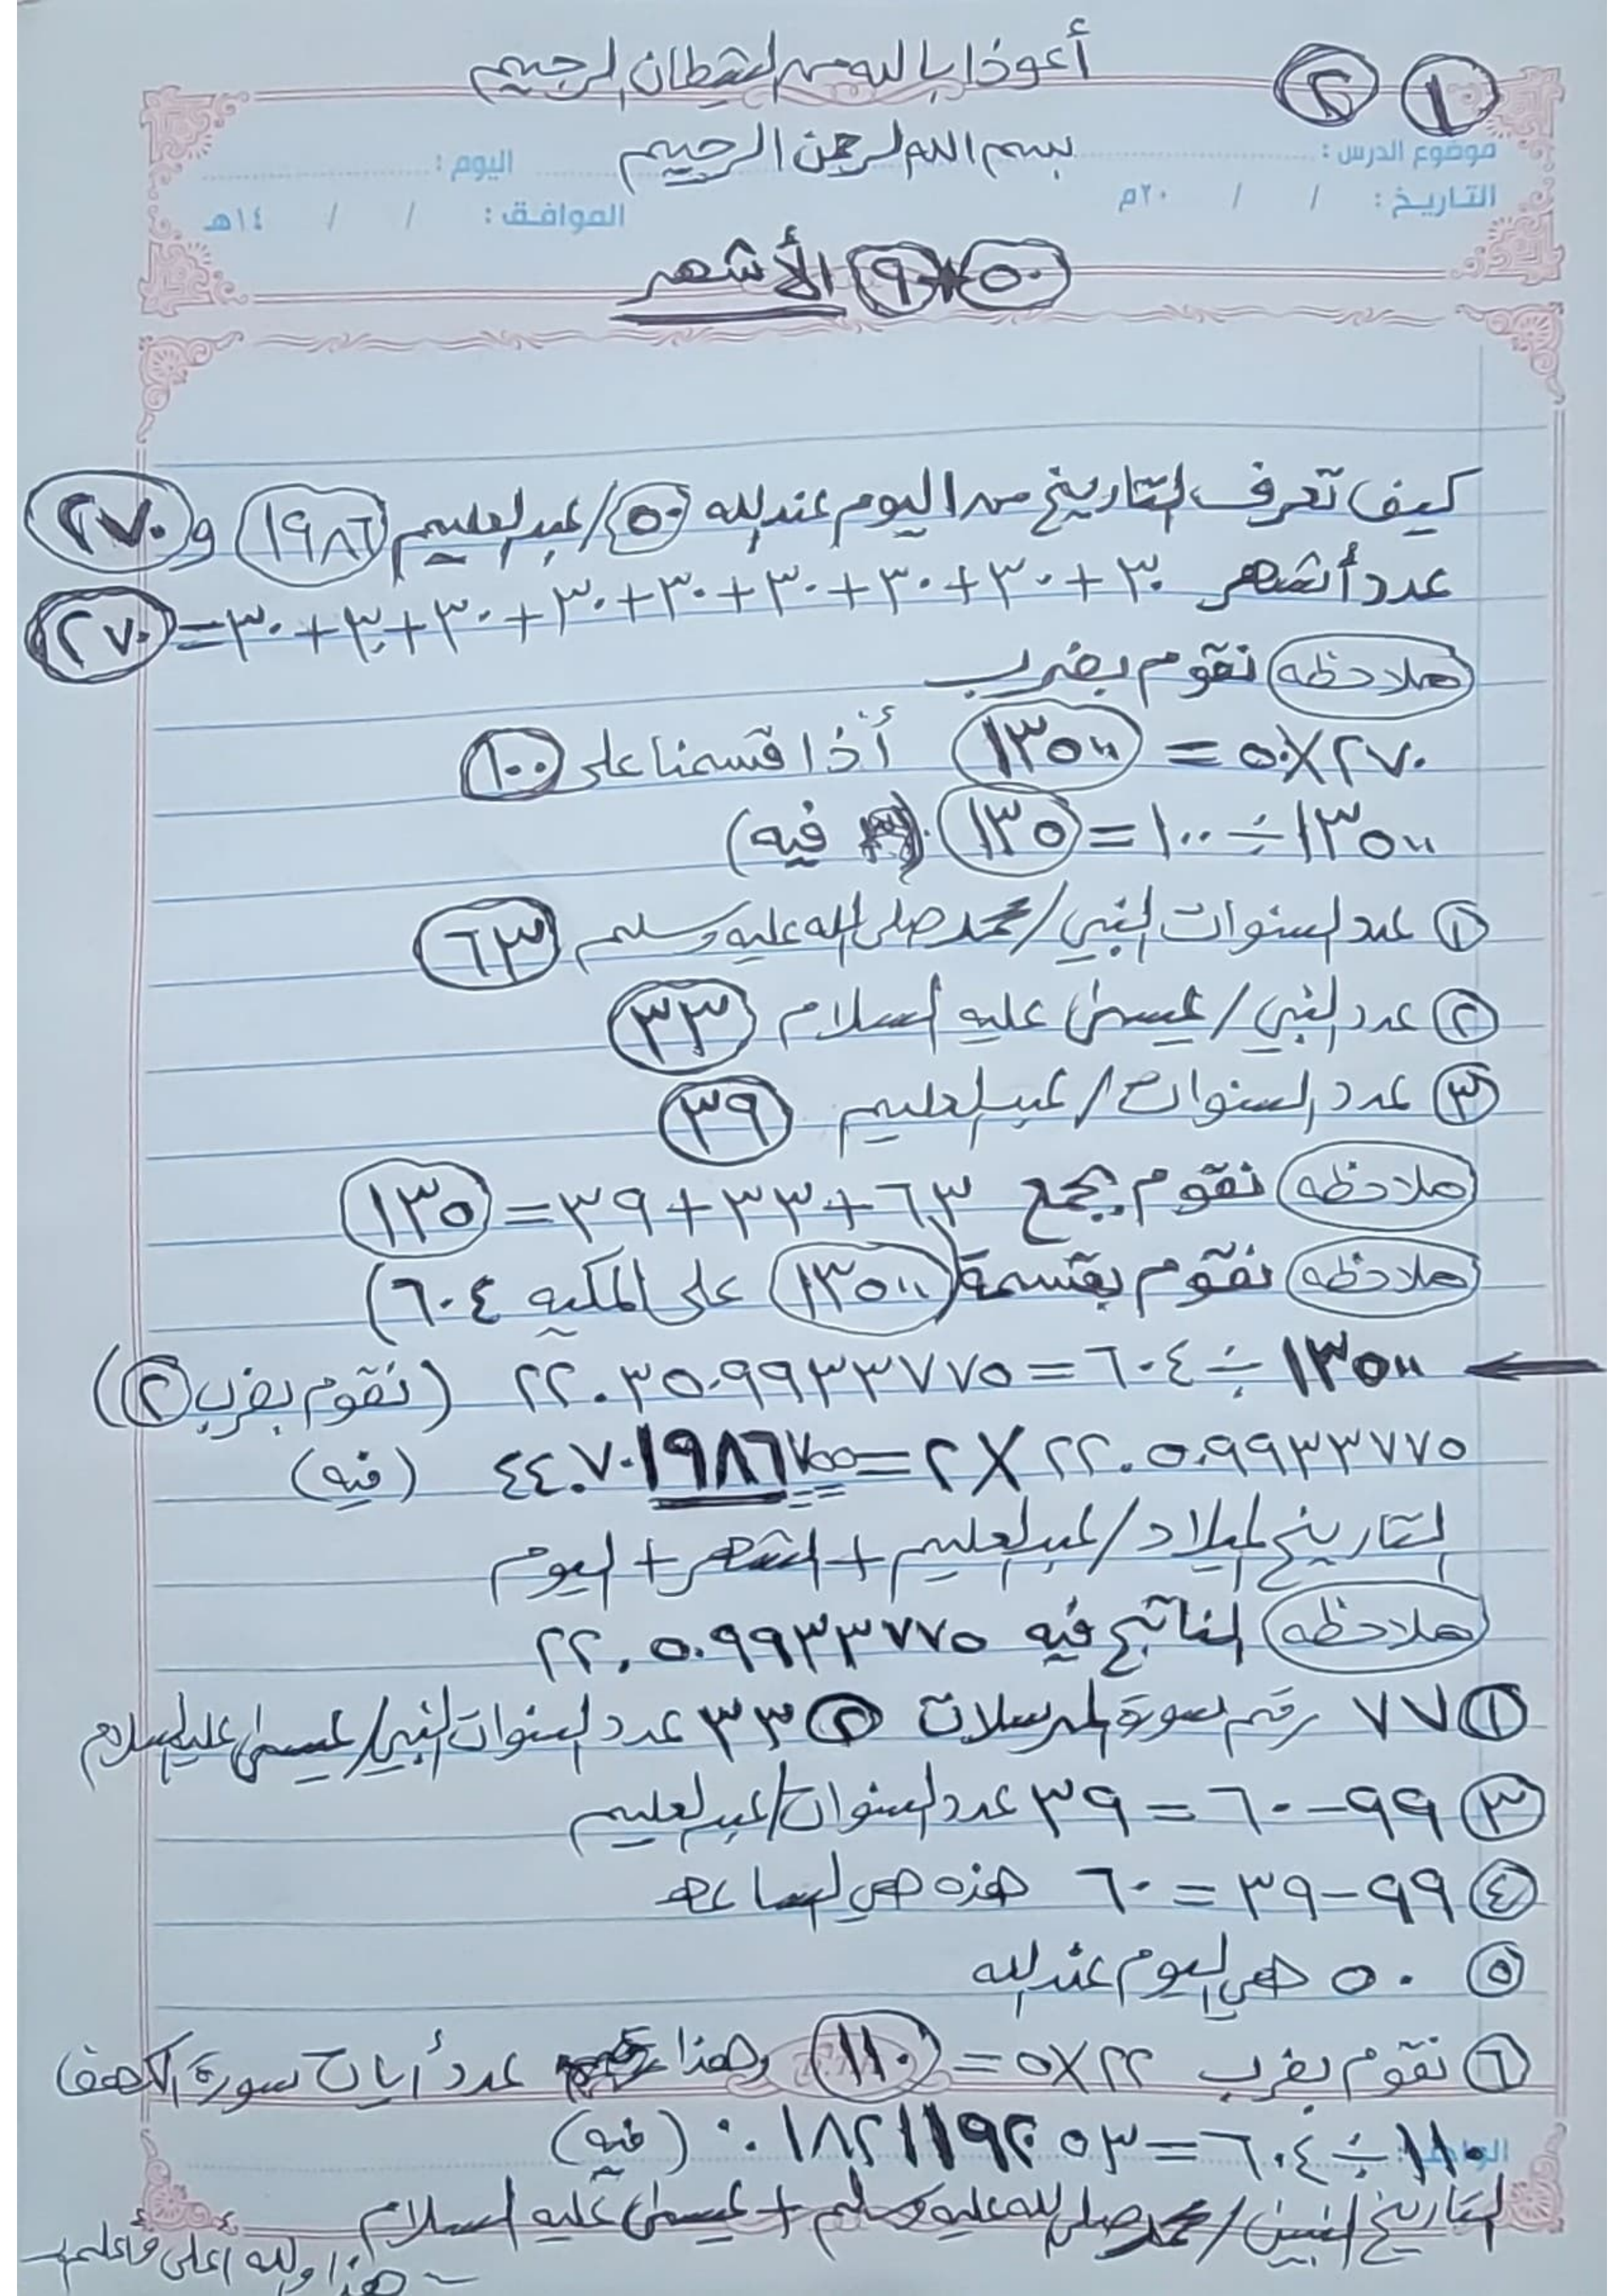 أعوذ بالله من الشيطان الرجيم
١ ٢
بسم الله الرحمن الرحيم
موضوع الدرس : اليوم :
التاريخ : / / ٢٠م الموافق : / / ١٤هـ
٥٠*٩ الأشهر
كيف تعرف التاريخ من اليوم عند الله ٥٠/عبدالعليم ١٩٨٦ و ٢٧٠
عدد أشهر ٣٠+٣٠+٣٠+٣٠+٣٠+٣٠+٣٠+٣٠+٣٠=٢٧٠
ملاحظه نقوم بضرب
٢٧٠×٥٠ = ١٣٥٠٠ أذا قسمنا على ١٠٠
١٣٥٠٠÷١٠٠=١٣٥ (فيه)
١ عدد السنوات النبي/محمد صلى الله عليه وسلم ٦٣
٢ عدد النبي/عيسى عليه السلام ٣٣
٣ عدد السنوات/عبدالعليم ٣٩
ملاحظه نقوم بجمع ٦٣+٣٣+٣٩=١٣٥
ملاحظه نقوم بقسمة (١٣٥٠٠ على المكيه ٦٠٤)
١٣٥٠٠÷٦٠٤=٢٢.٣٥٠٩٩٣٣٧٧٥ (نقوم بضرب ٢)
٢٢.٥٠٩٩٣٣٧٧٥×٢=٤٤.٧٠١٩٨٦٧٥٥ (فيه)
التاريخ الميلاد/عبدالعليم+الشهر+اليوم
ملاحظه الناتج فيه ٢٢.٥٠٩٩٣٣٧٧٥
١ ٧٧ رقم سورة المرسلات ٢ ٣٣ عدد السنوات النبي/عيسى عليه السلام
٣ ٩٩-٦٠=٣٩ عدد السنوات/عبدالعليم
٤ ٩٩-٣٩=٦٠ هذه هي الساعه
٥ ٥٠ هي اليوم عند الله
٦ نقوم بضرب ٢٢×٥=١١٠ وهذا عدد أيات سورة الكهف
١١٠÷٦٠٤=٠.١٨٢١١٩٢٠٥٣ (فيه)
التاريخ النبيين/محمد صلى الله عليه وسلم+عيسى عليه السلام
هذا والله أعلى وأعلم